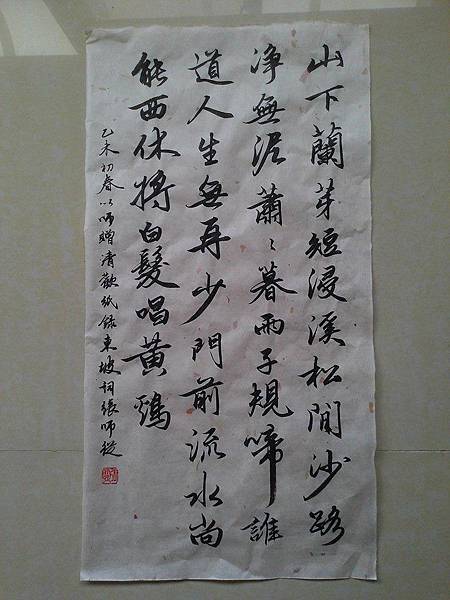 山下蘭芽短浸溪松間沙路
净無泥蕭〻暮雨子規啼誰
道人生無再少門前流水尚
能西休將白髮唱黃鷄
乙未初春以師贈清歡紙錄東坡詞張師從